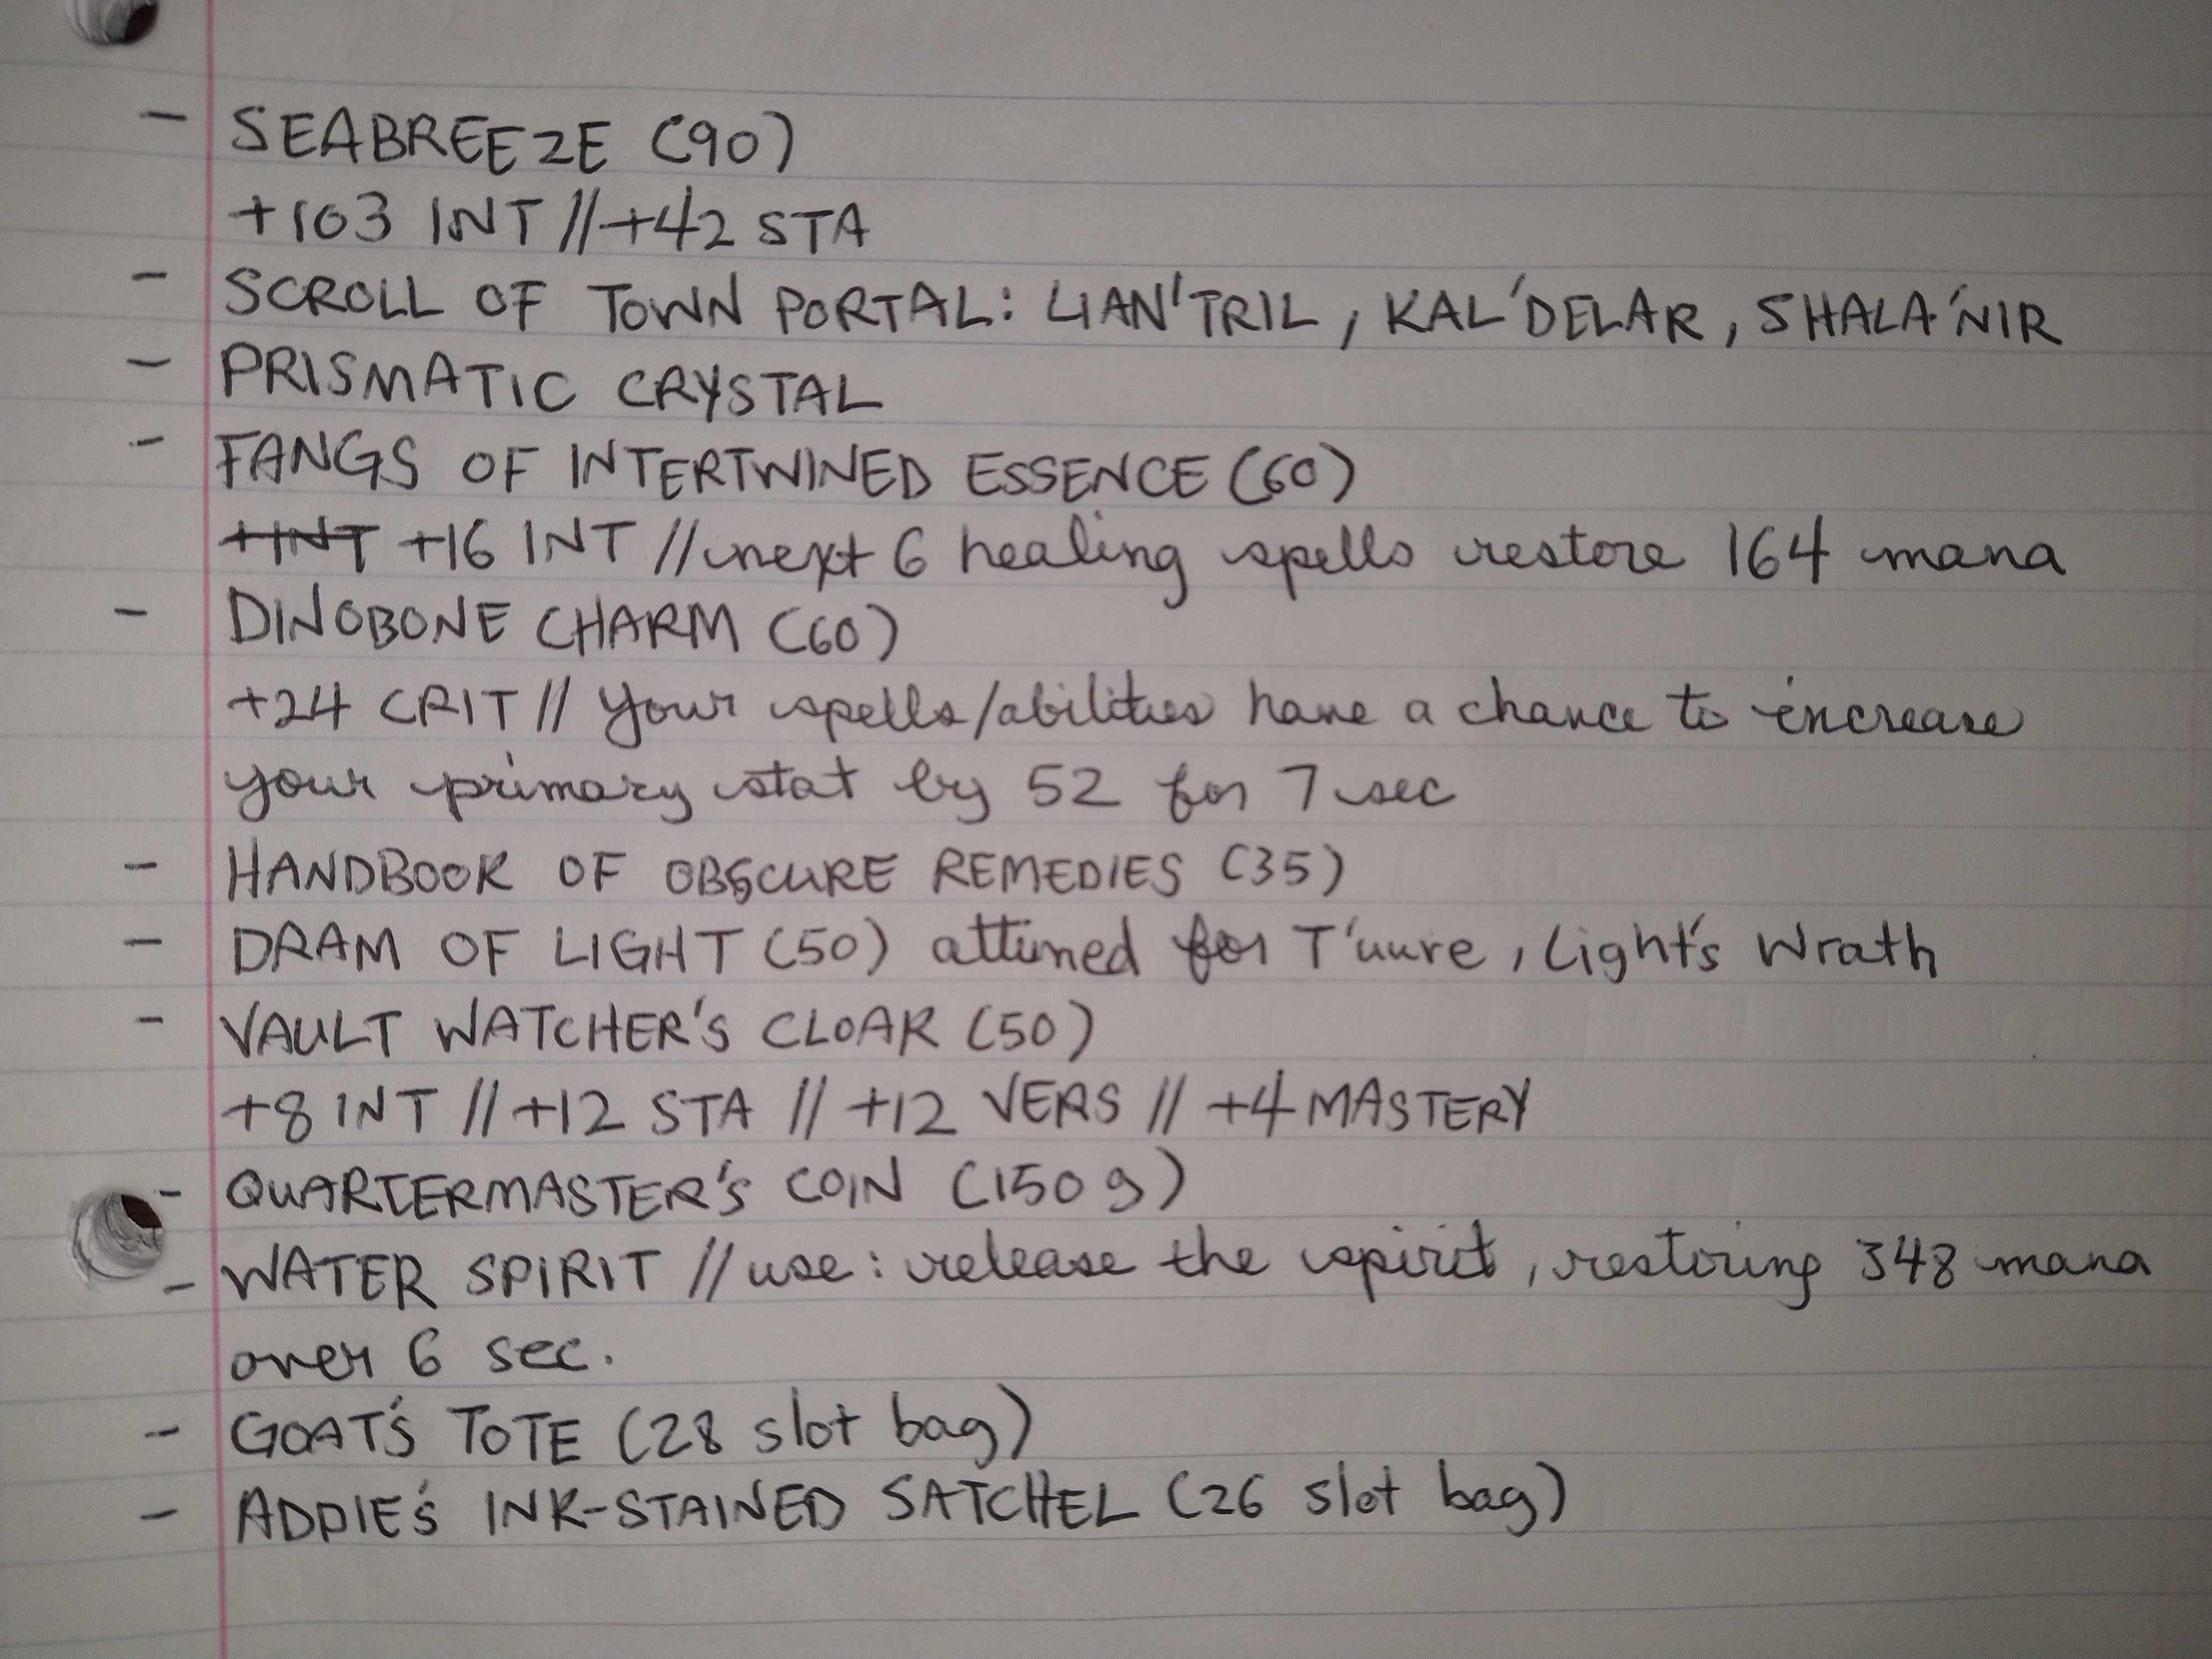 - SEABREEZE (90)
+103 INT // +42 STA
- SCROLL OF TOWN PORTAL: LIAN'TRIL, KAL'DELAR, SHALA'NIR
- PRISMATIC CRYSTAL
- FANGS OF INTERTWINED ESSENCE (60)
+INT +16 INT // next 6 healing spells restore 164 mana
- DINOBONE CHARM (60)
+24 CRIT // your spells/abilities have a chance to increase
your primary stat by 52 for 7 sec
- HANDBOOK OF OBSCURE REMEDIES (35)
- DRAM OF LIGHT (50) attuned for T'uure, Light's Wrath
- VAULT WATCHER'S CLOAK (50)
+8 INT // +12 STA // +12 VERS // +4 MASTERY
- QUARTERMASTER'S COIN (150 g)
- WATER SPIRIT // use: release the spirit, restoring 348 mana
over 6 sec.
- GOAT'S TOTE (28 slot bag)
- ADDIE'S INK-STAINED SATCHEL (26 slot bag)